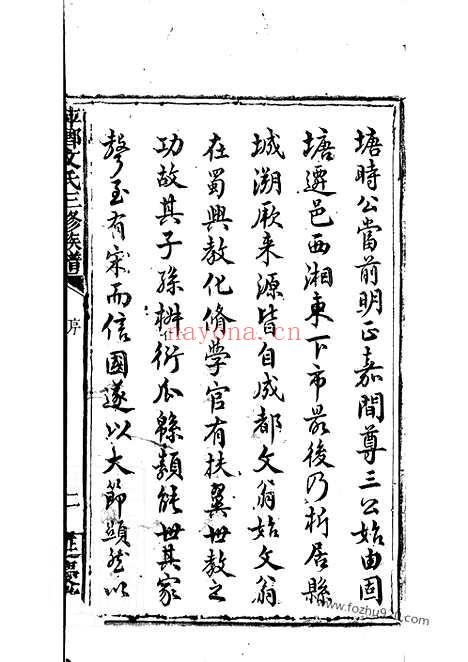 塘時公當前明正嘉間尊三公始由固
塘遷邑西湘東下市最後乃析居縣
城溯厥来源皆自成都文翁始文翁
在蜀興教化脩學官有扶翼世教之
功故其子孫椒衍瓜緜類能世其家
聲至有宋而信國遂以大節顯然以
萍鄉文氏三修族譜
序
二
nayona.cn
www.fozhu920.com